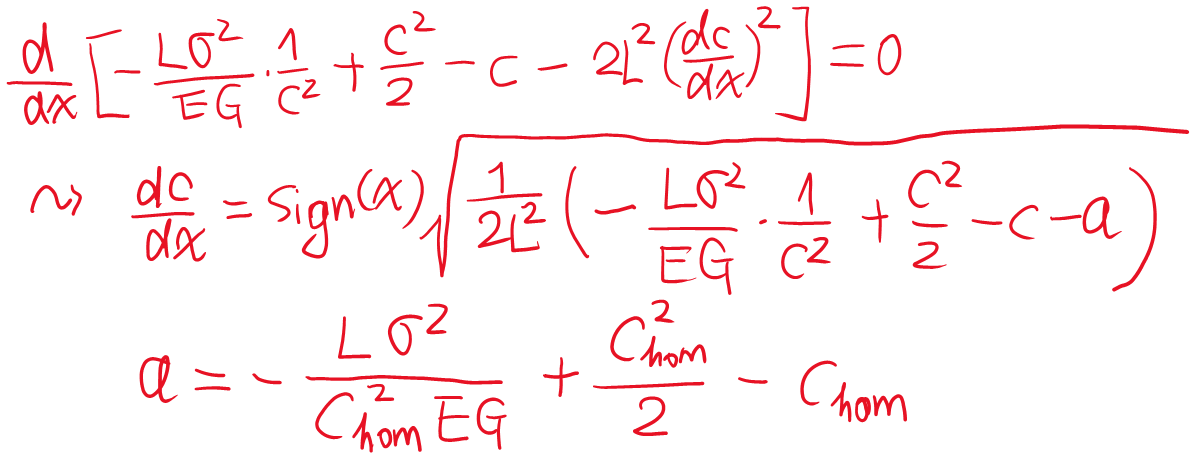 d/dx [ -Lσ²/EG · 1/c² + c²/2 - c - 2L² (dc/dx)² ] = 0
⇝ dc/dx = sign(x) √( 1/2L² ( -Lσ²/EG · 1/c² + c²/2 - c - a ) )
a = - Lσ²/(C²hom EG) + C²hom/2 - Chom